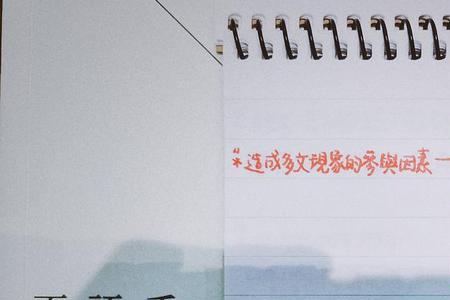 "*造成多文現象的參與因素一